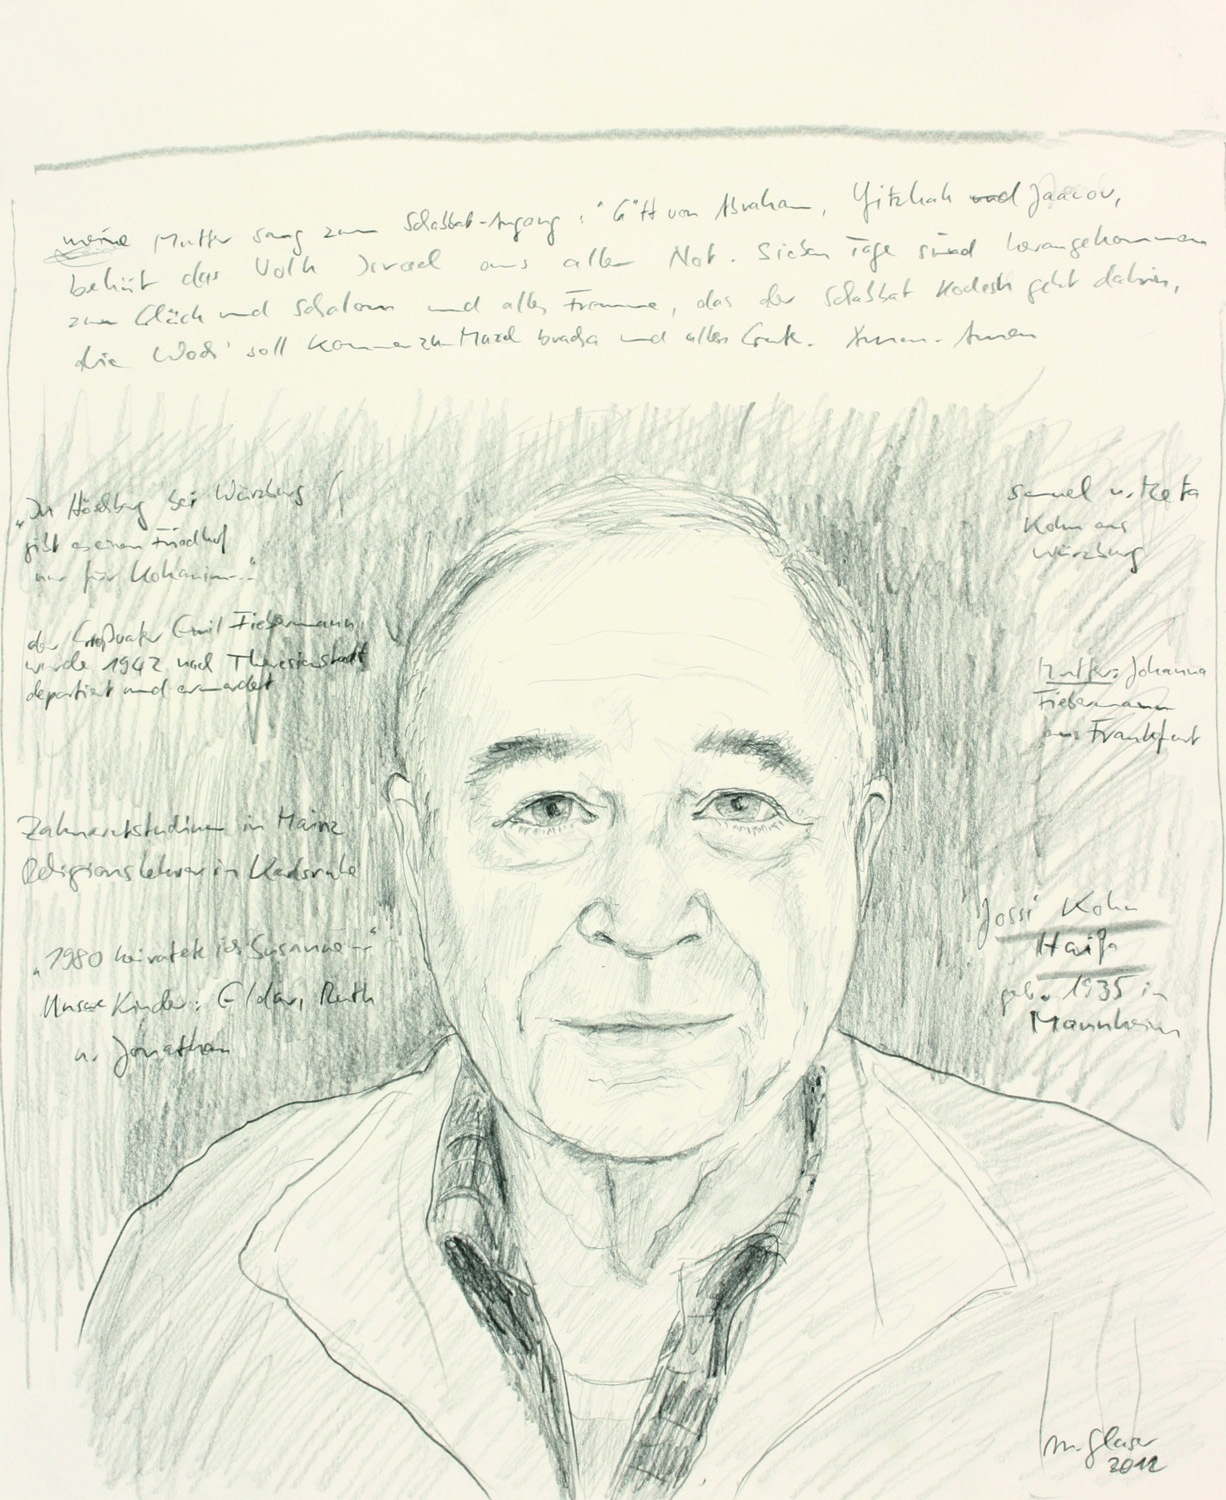 meine Mutter sang zum Schabbat-Ausgang: "G"tt von Abraham, Yitzhak und Jaacov,
behüt das Volk Israel aus aller Not. Sieben Tage sind herangekommen
zum Glück und Schalom und alles Fromme, das der Schabbat Kodesh geht dahin,
die Woch' soll kommen zu Mazel bracha und alles Gute. Amen. Amen
"In Höchberg bei Würzburg
gibt es einen Friedhof
nur für Kohanim..."
der Großvater Emil Fiebermann
wurde 1942 nach Theresienstadt
deportiert und ermordet
Zahnarztstudium in Mainz
Religionslehrer in Karlsruhe
"1980 heiratete ich Susanne..."
Unsere Kinder: Eldar, Ruth
u. Jonathan
Samuel u. Meta
Kohn aus
Würzburg
Mutter: Johanna
Fiebermann
aus Frankfurt
Jossi Kohn
Haifa
geb. 1935 in
Mannheim
m. Glaser
2012